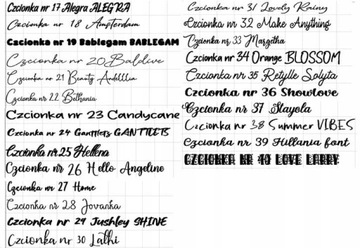 Czcionka nr 17 Alegra ALEGRA
Czcionka nr 18 Amsterdam
Czcionka nr 19 Bablegam BABLEGAM
Czcionka nr 20 Baldive
Czcionka nr 21 Beauty
Czcionka nr 22 Bethania
Czcionka nr 23 Candycane
Czcionka nr 24 Gauntlets GAUNTLETS
Czcionka nr 25 Hellena
Czcionka nr 26 Hello Angeline
Czcionka nr 27 Home
Czcionka nr 28 Jovanka
Czcionka nr 29 Jushley SHINE
Czcionka nr 30 Lathi
Czcionka nr 31 Lovely Rainy
Czcionka nr 32 Make Anything
Czcionka nr 33 Margetha
Czcionka nr 34 Orange BLOSSOM
Czcionka nr 35 Retylle Solyta
Czcionka nr 36 Showlove
Czcionka nr 37 Slayola
Czcionka nr 38 Summer VIBES
Czcionka nr 39 Hillania font
CZCIONKA NR 40 LOVE LARRY